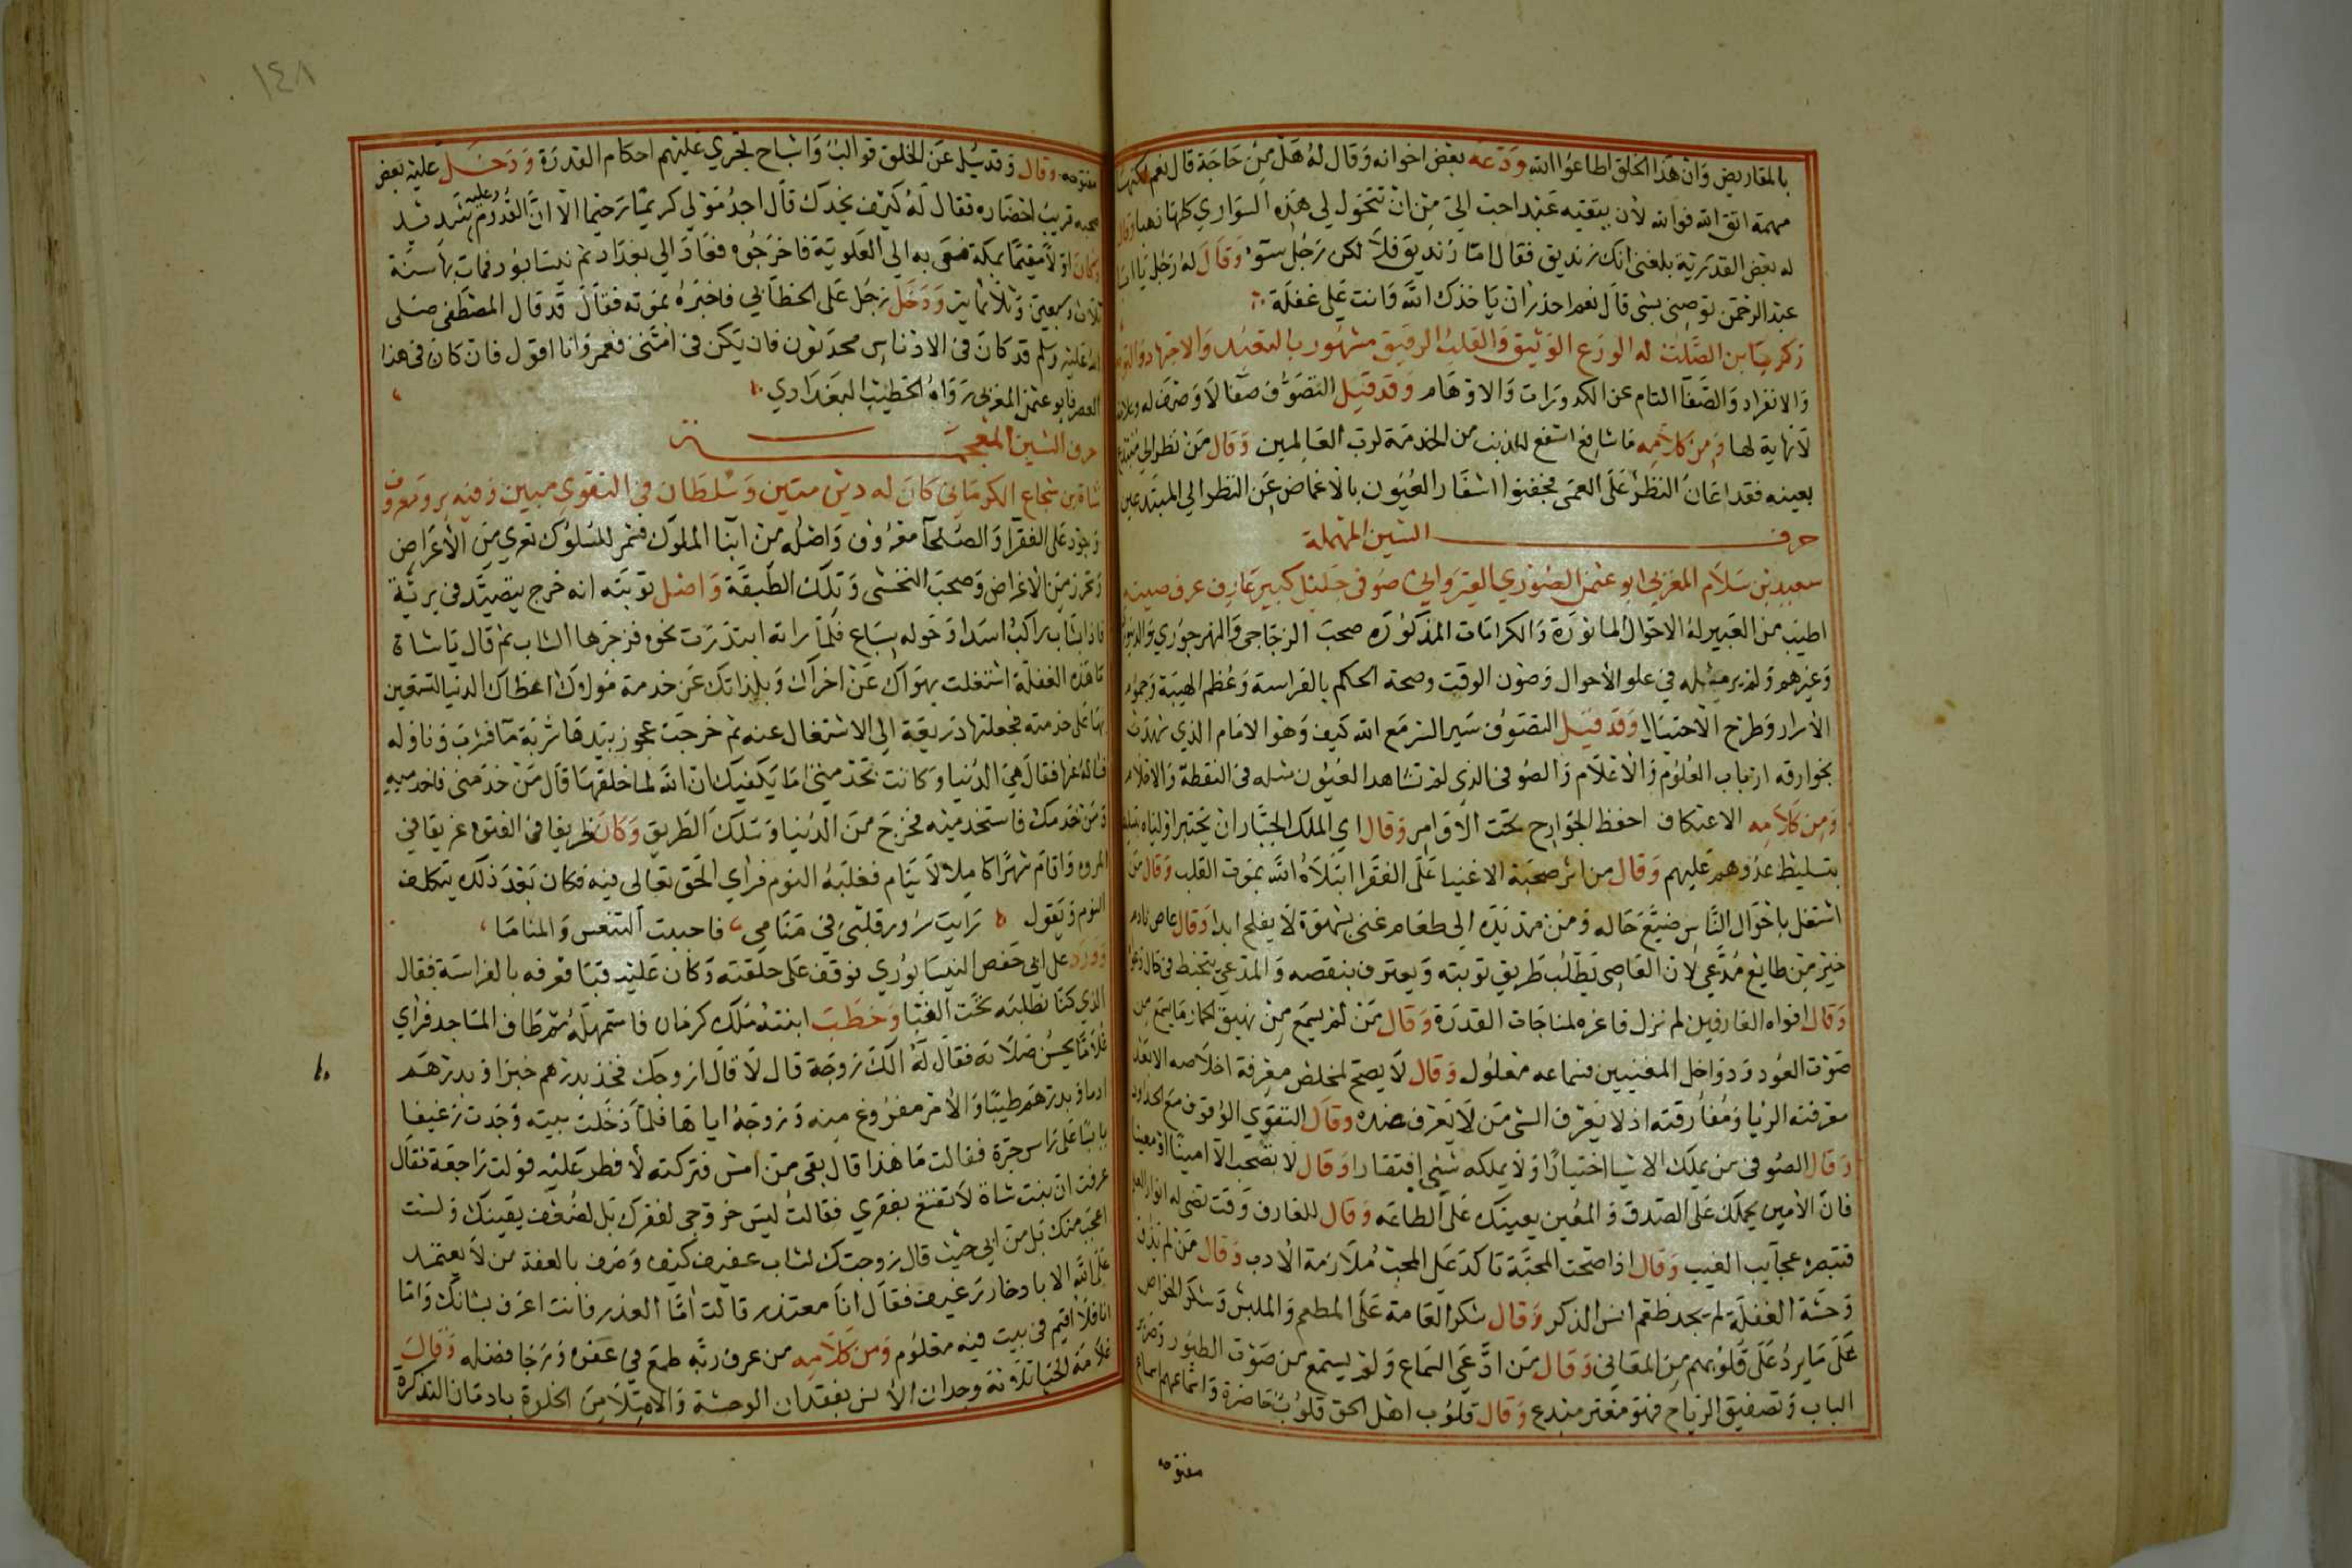 بالمقاريض وان هذا الخلق اطاعوا الله وودعه بعض اخوانه وقال له هل من حاجة قال نعم لكنها
مهمة اتق الله فوالله لان يتقيه عبد احب الي من ان تتحول لي هذه السواري كلها ذهبا وقال
له بعض القدرية بلغني انك زنديق فقال اما زنديق فلا لكن رجل سوء وقال له رجل يا ابا
عبد الرحمن توصني بشي قال نعم احذر ان ياخذك الله وانت على غفلة
زكريا بن الصلت له الورع الوثيق والقلب الرقيق مشهور بالتعبد والاجتهاد
والانفراد والصفا التام عن الكدورات والاوهام وقد قيل التصوف صفا لا وصف له
لا نهاية لها ومن كلامه ما شافع اشفع للمذنب من الخدمة لرب العالمين وقال من نظر الي مبتدع
بعينه فقد اعان النظر على العمى فجفنوا اشفار العيون بالاغماض عن النظر الي المبتدعين
حرف السين المهملة
سعيد بن سلام المغربي ابو عثمن الصوري القيرواني صوفي جليل كبير عارف عرف صيته
اطيب من العبير له الاحوال الماثورة والكرامات المذكوره صحب الزجاجي والنهرجوري
وغيرهم ولم ير مثله في علو الأحوال وصون الوقت وصحة الحكم بالفراسة وعظم الهيبة
الاسرار وطرح الاحتيال وقد قيل التصوف سير السر مع الله كيف وهو الامام الذي شهدت
بخوارقه ارباب العلوم والاعلام والصوفي الذي لم تشاهد العيون مثله في اليقظة والاحلام
ومن كلامه الاعتكاف احفظ الجوارح تحت الاوامر وقال ابي الملك الجبار ان يختبر اولياه
بتسليط عدوهم عليهم وقال من اثر صحبة الاغنيا على الفقرا ابتلاه الله بموت القلب وقال من
اشتغل باحوال الناس ضيع حاله ومن مد يده الي طعام غني بشهوة لا يفلح ابدا وقال عاص نادم
خير من طايع مدعي لان العاصي يطلب طريق توبته ويعترف بنقصه والمدعي يتخبط في
وقال افواه العارفين لم تزل فاغره لمناجات القدرة وقال من لم يسمع من نهيق الحمار ما يسمع من
صوت العود ودواخل المغنيين فسماعه معلول وقال لا يصح لمخلص معرفة اخلاصه الا بعد
معرفته الريا ومفارقته اذ لا يعرف الشي من لا يعرف ضده وقال التقوي الوقوف مع الحدود
وقال الصوفي من يملك الاشيا اختيارا ولا يملكه شي افتقارا وقال لا تصحب الا امينا او معينا
فان الأمين يحملك على الصدق والمعين يعينك على الطاعه وقال للعارف وقت تضي له انوار
فتبصره عجايب الغيب وقال اذا صحت المحبة تاكد على المحب ملازمة الادب وقال من لم يذق
وحشة الغفلة لم يجد طعم انس الذكر وقال شكر العامة على المطعم والملبس وشكر الخواص
على ما يرد على قلوبهم من المعاني وقال من ادعي السماع ولم يستمع من صوت الطيور وصرير
الباب وتصفيق الرياح فهو مفتر مبتدع وقال قلوب اهل الحق قلوب حاضرة واسماعهم اسماع
مفتوحه
١٤٨
مفتوحه وقال وقد سيل عن الخلق قوالب واشباح تجري عليهم احكام القدرة ودخل عليه بعض
صحبه قريب احتضاره فقال له كيف تجدك قال اجد مولي كريما رحيما الا ان القدوم عليه شديد
وكان اولا مقيما بمكة فسعي به الي العلوية فاخرجوه فعاد الي بغداد ثم نيسابور فمات بها سنة
ثلاث وسبعين وثلاثمائة ودخل رجل على الخطابي فاخبره بموته فقال قد قال المصطفى صلى
الله عليه وسلم قد كان في الاد ناس محدثون فان يكن في امتي فعمر وانا اقول فان كان في هذا
العصر فابو عثمن المغربي رواه الخطيب البغدادي
حرف الشين المعجمة
شاه بن شجاع الكرماني كان له دين متين وسلطان في التقوي مبين وفيه بر ومعروف
وجود على الفقرا والصلحا معروف واصله من ابنا الملوك فشمر للسلوك تعري من الأعراض
وتحرز من الاغراض وصحب النخشبي وتلك الطبقة واصل توبته انه خرج يتصيد في برية
فاذا شاب راكب اسدا وحوله سباع فلما راته ابتدرت نحوه فزجرها الشاب ثم قال يا شاة
ما هذه الغفلة اشتغلت بهواك عن اخراك وبلذاتك عن خدمة مولاك اعطاك الدنيا لتستعين
بها على خدمته فجعلتها ذريعة الي الاشتغال عنه ثم خرجت عجوز بيدها شربة ما فشرب وناوله
فساله عنها فقال هي الدنيا وكانت تخدمني اما يكفيك ان الله لما خلقها قال من خدمني فاخدميه
ومن خدمك فاستخدميه فخرج من الدنيا وسلك الطريق وكان ظريفا في الفتوه عريقا في
المروه واقام شهرا كاملا لا ينام فغلبه النوم فراي الحق تعالى فيه فكان بعد ذلك يتكلف
النوم ويقول رايت سرور قلبي في منامي فاحببت التنعس والمناما
وورد على ابي حفص النيسابوري فوقف على حلقته وكان عليه قبا فعرفه بالفراسة فقال
الذي كنا نطلبه تحت القبا وخطب ابنته ملك كرمان فاستمهله ثم طاف المساجد فراي
غلاما يحسن صلاته فقال له الك زوجة قال لا قال ازوجك فخذ بدرهم خبزا وبدرهم
ادما وبدرهم طيبا والأمر مفروغ منه وزوجه اياها فلما دخلت بيته وجدت رغيفا
يابسا على راس جرة فقالت ما هذا قال بقي من امس فتركته لأفطر عليه فولت راجعة فقال
عرفت ان بنت شاة لا تقنع بفقري فقالت ليس خروجي لفقرك بل لضعف يقينك ولست
اعجب منك بل من ابي حيث قال زوجتك لشاب عفيف كيف وصف بالعفة من لا يعتمد
على الله الا بادخار رغيف فقال انا معتذر قالت اما العذر فانت اعرف بشانك واما
انا فلا اقيم في بيت فيه معلوم ومن كلامه من عرف ربه طمع في عفوه ورجا فضله وقال
علامة الحيا ثلاثة وجدان الانس بفقدان الوحشة والامتلا من الخلوة بادمان التذكرة